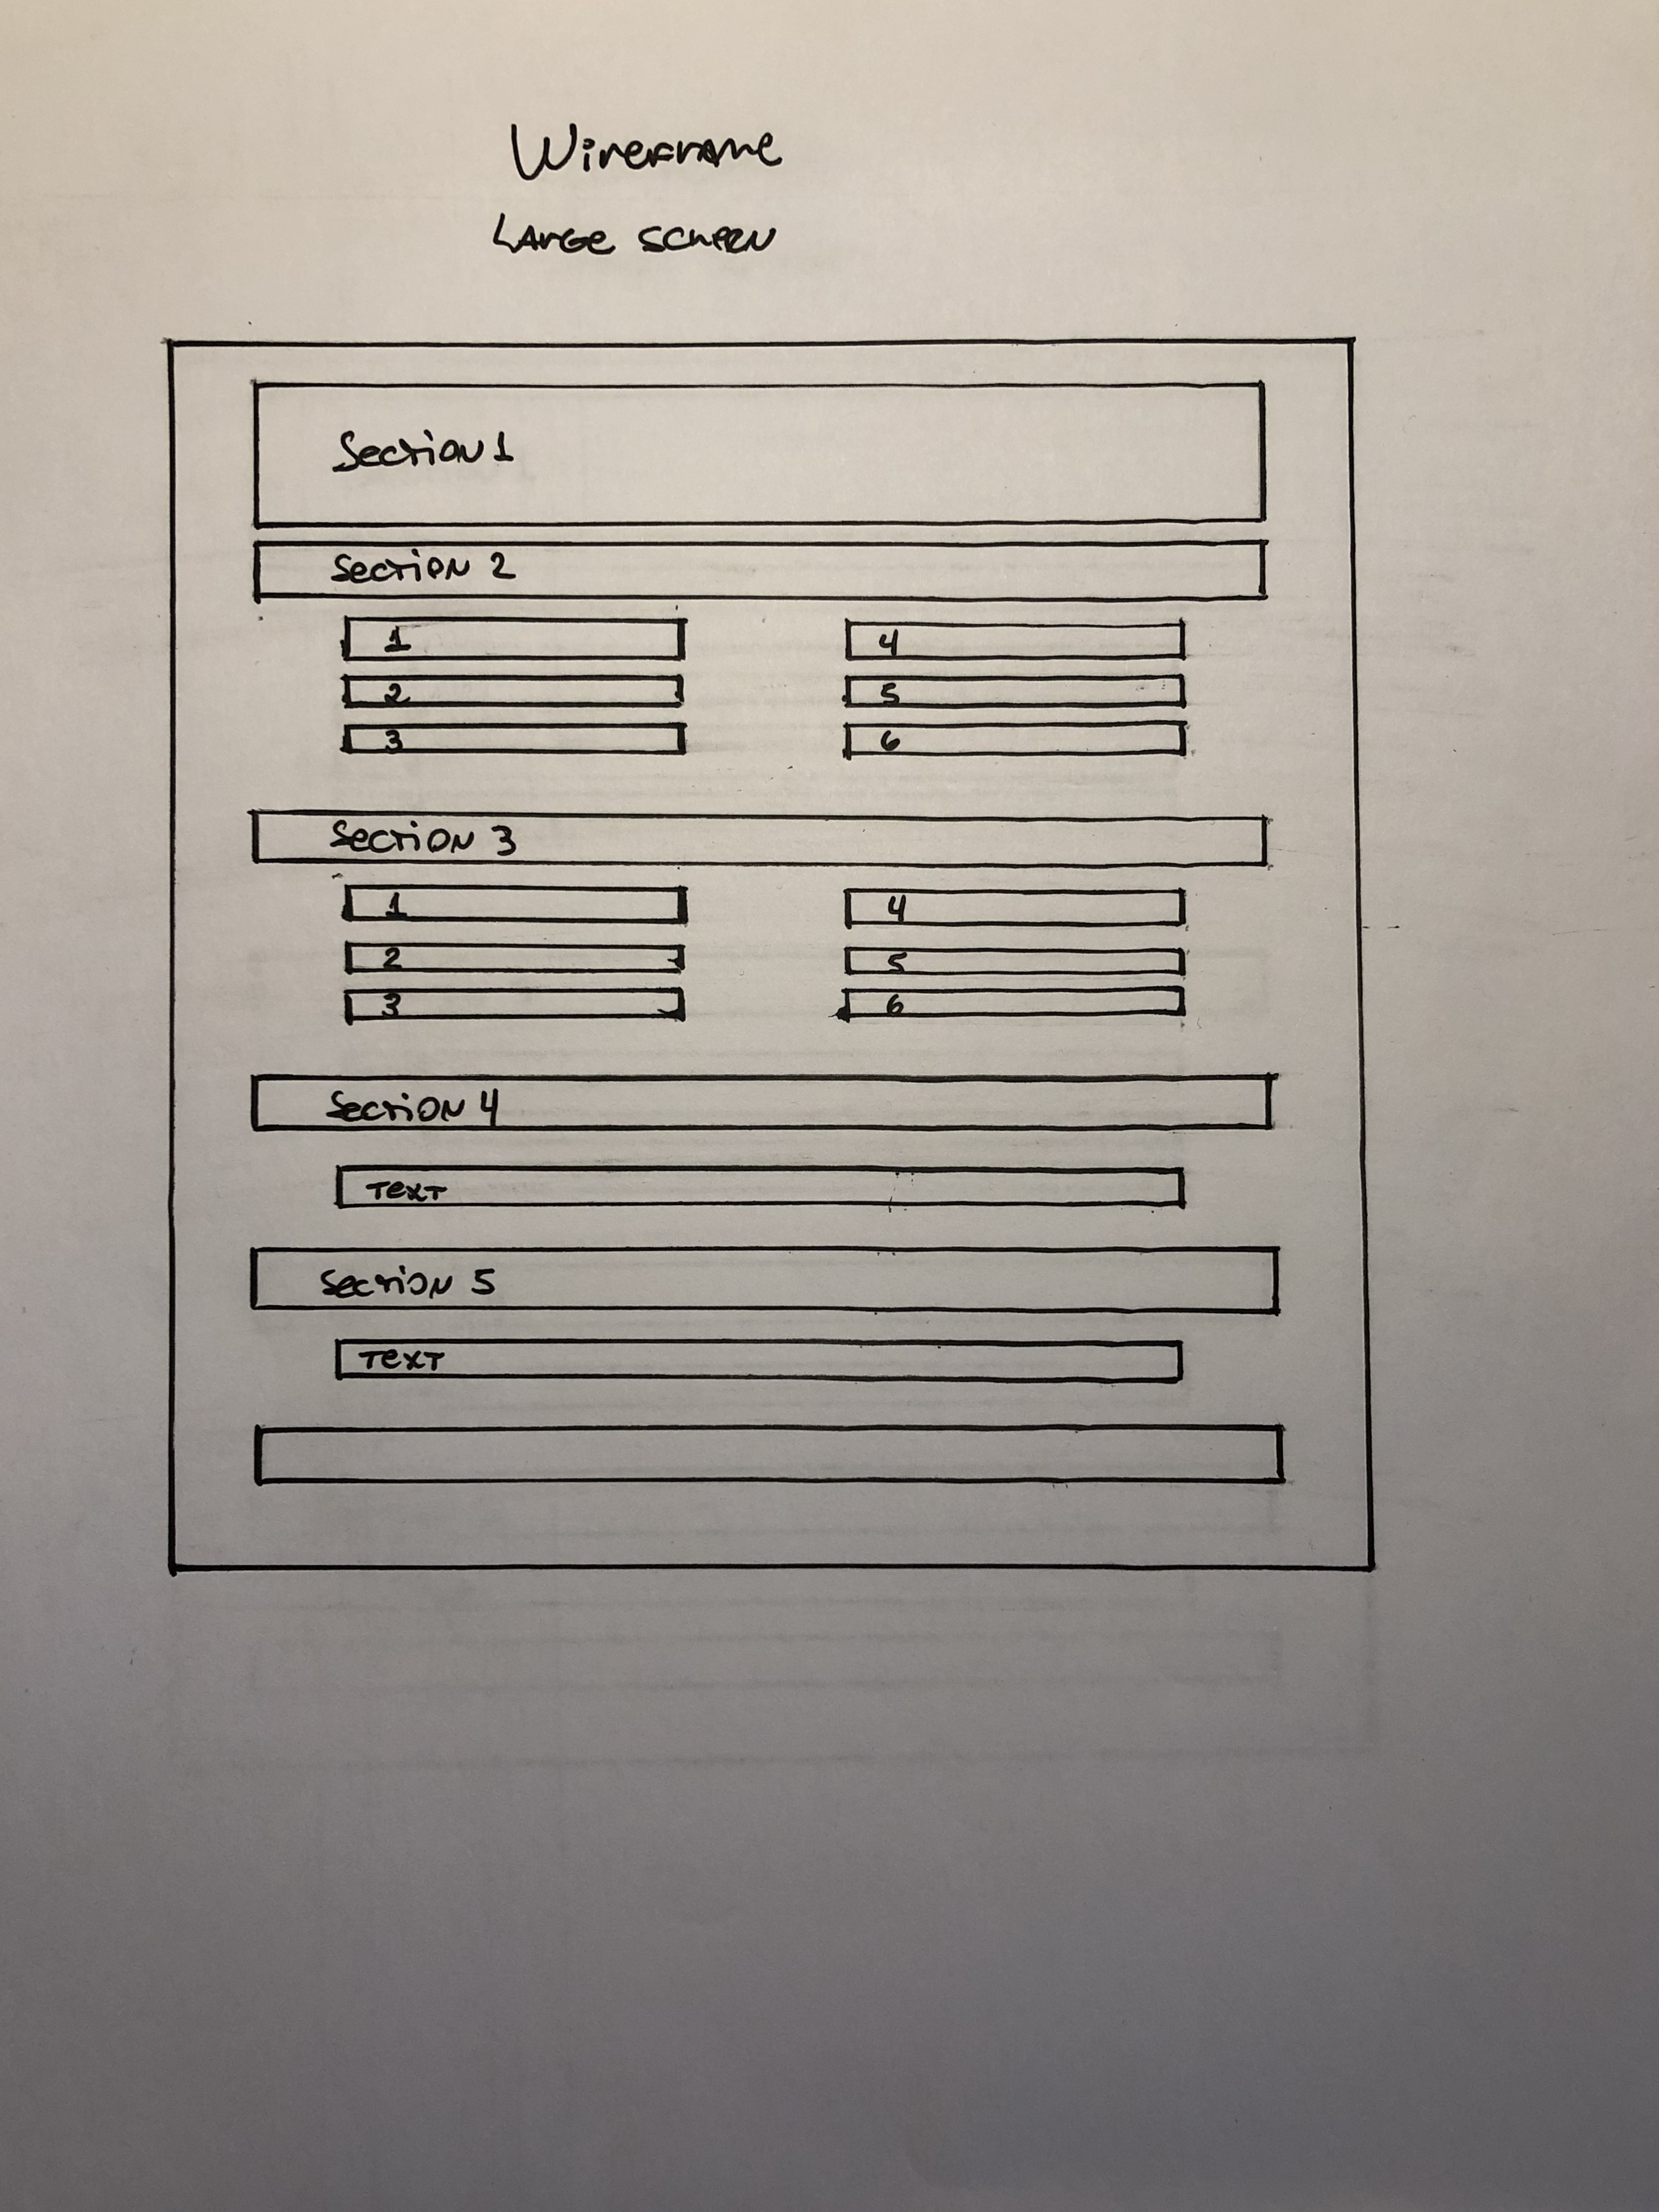 Wireframe
Large screen
Section 1
Section 2
1 4
2 5
3 6
Section 3
1 4
2 5
3 6
Section 4
Text
Section 5
Text